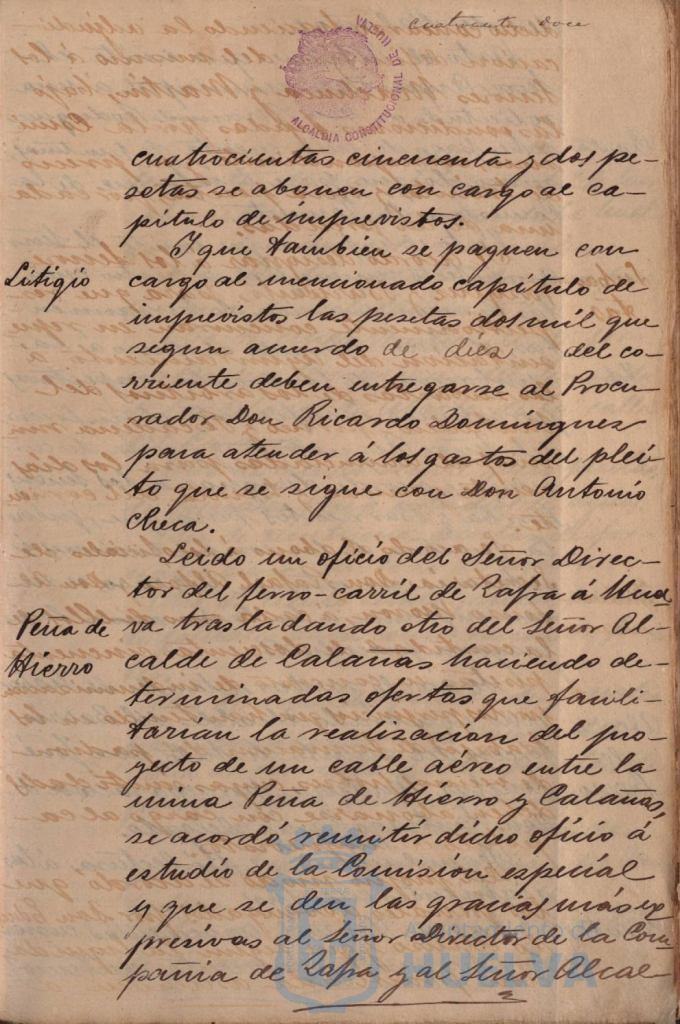 cuatrocientos doce
ALCALDIA CONSTITUCIONAL DE HUELVA
cuatrocientas cincuenta y dos pe-
setas se abonen con cargo al ca-
pítulo de imprevistos.
Y que tambien se paguen con
Litigio
cargo al mencionado capítulo de
imprevistos las pesetas dos mil que
segun acuerdo de diez del co-
rriente deben entregarse al Procu-
rador Don Ricardo Domínguez
para atender á los gastos del plei-
to que se sigue con Don Antonio
Checa.
Leido un oficio del Señor Direc-
tor del ferro-carril de Zafra á Huel-
Peña de
Hierro
va trasladando otro del Señor Al-
calde de Calañas haciendo de-
terminadas ofertas que facili-
tarían la realizacion del pro-
yecto de un cable aéreo entre la
mina Peña de Hierro y Calañas,
se acordó remitir dicho oficio á
estudio de la Comision especial
y que se den las gracias más ex-
presivas al Señor Director de la Com-
pañia de Zafra y al Señor Alcal-
HUELVA